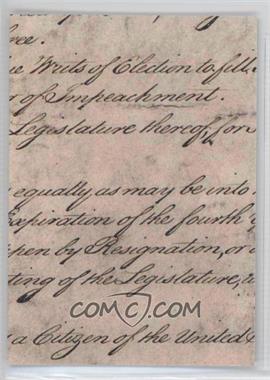 ree.
e Writs of Election to fill
r of Impeachment.
Legislature thereof, for
equally as may be into
Expiration of the fourth
pen by Resignation, or
ting of the Legislature,
COMC.COM
a Citizen of the United